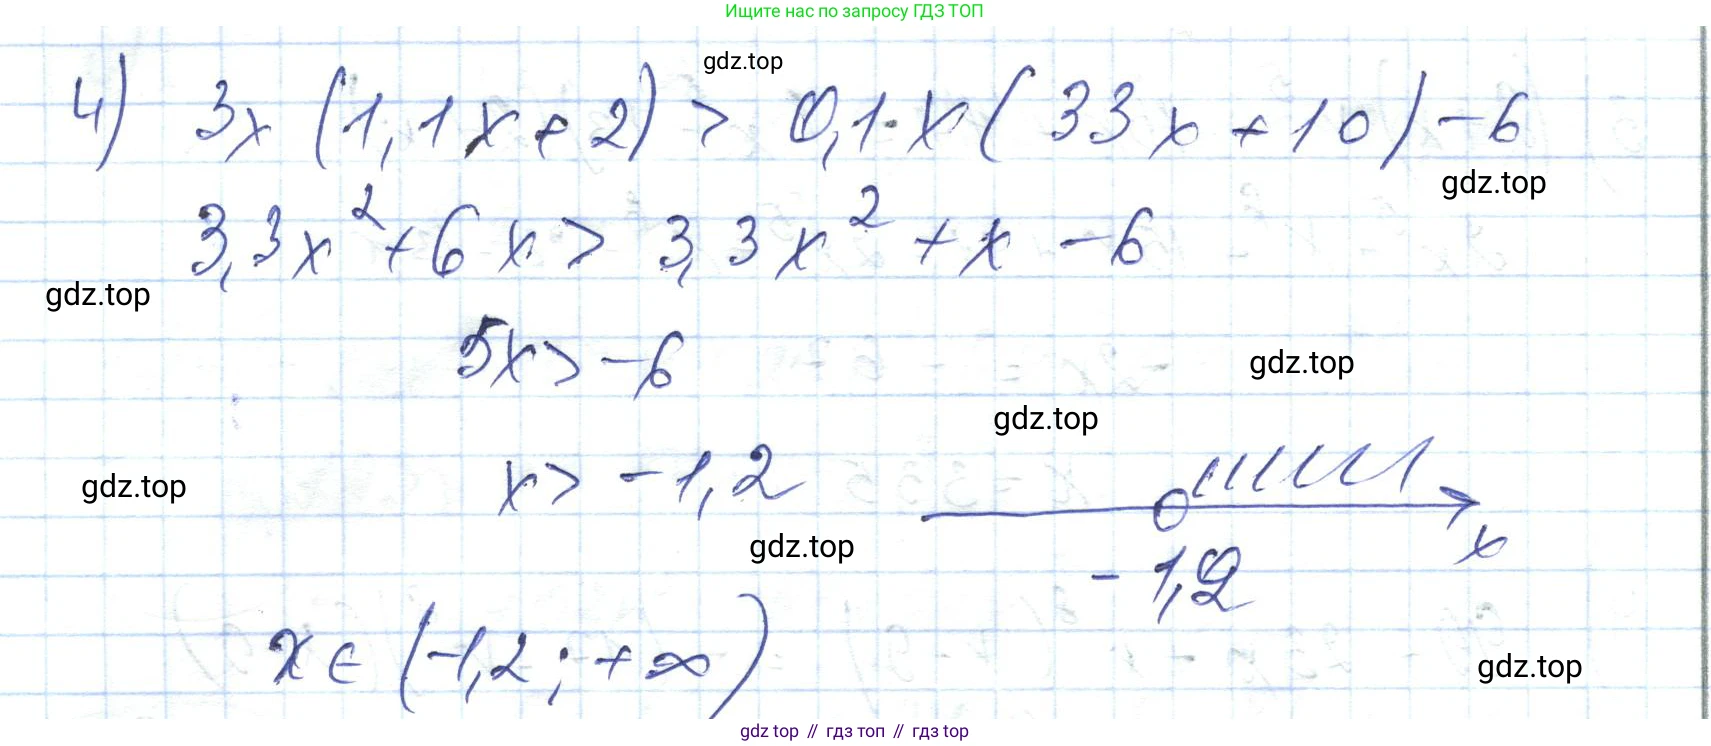 Ищите нас по запросу ГДЗ ТОП
gdz.top
4) 3x (1,1x + 2) > 0,1·x (33x + 10) - 6
gdz.top
3,3x² + 6x > 3,3x² + x - 6
gdz.top
5x > -6
gdz.top
gdz.top
x > -1,2
gdz.top
x
gdz.top
-1,2
x ∈ (-1,2; +∞)
gdz.top
gdz top // гдз топ // гдз top